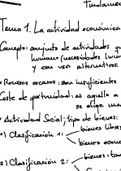 Fundamen
Tema 1. La actividad económica
Concepto: conjunto de actividades q
humanas (necesidades
y con uso alternativo
Recursos escasos: son insuficientes
Coste de oportunidad: es aquello a
se elige una
Actividad Social; tipo de bienes:
1) Clasificación 1: bienes libres
bienes econó
2) Clasificación 2: bienes